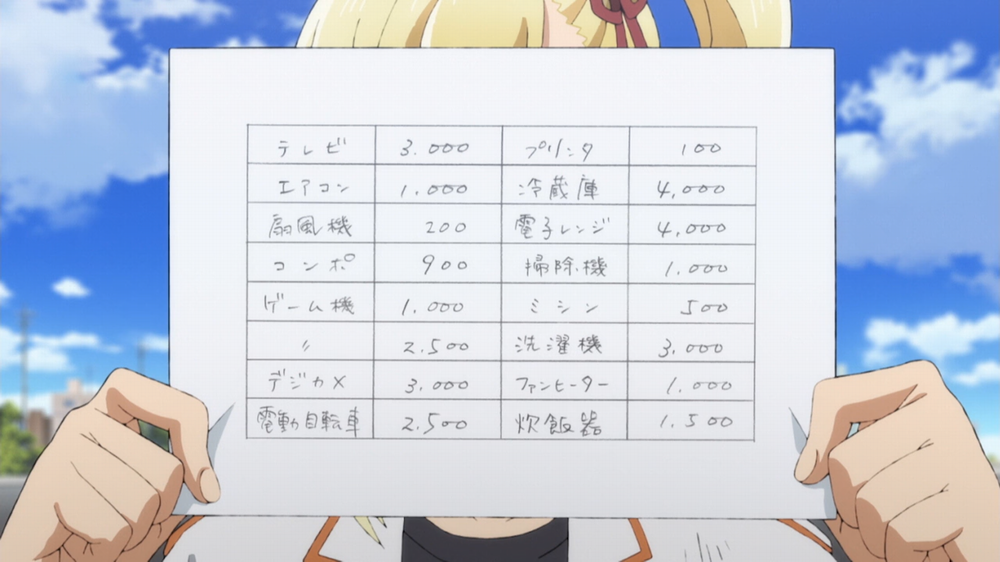 テレビ 3.000 プリンタ 100
エアコン 1.000 冷蔵庫 4,000
扇風機 200 電子レンジ 4,000
コンポ 900 掃除機 1.000
ゲーム機 1.000 ミシン 500
〃 2.500 洗濯機 3,000
デジカメ 3.000 ファンヒーター 1.000
電動自転車 2.500 炊飯器 1.500